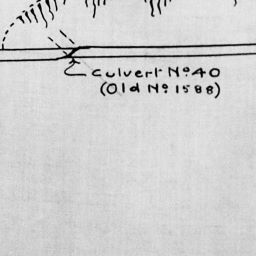 Culvert No. 40
(Old No. 1588)